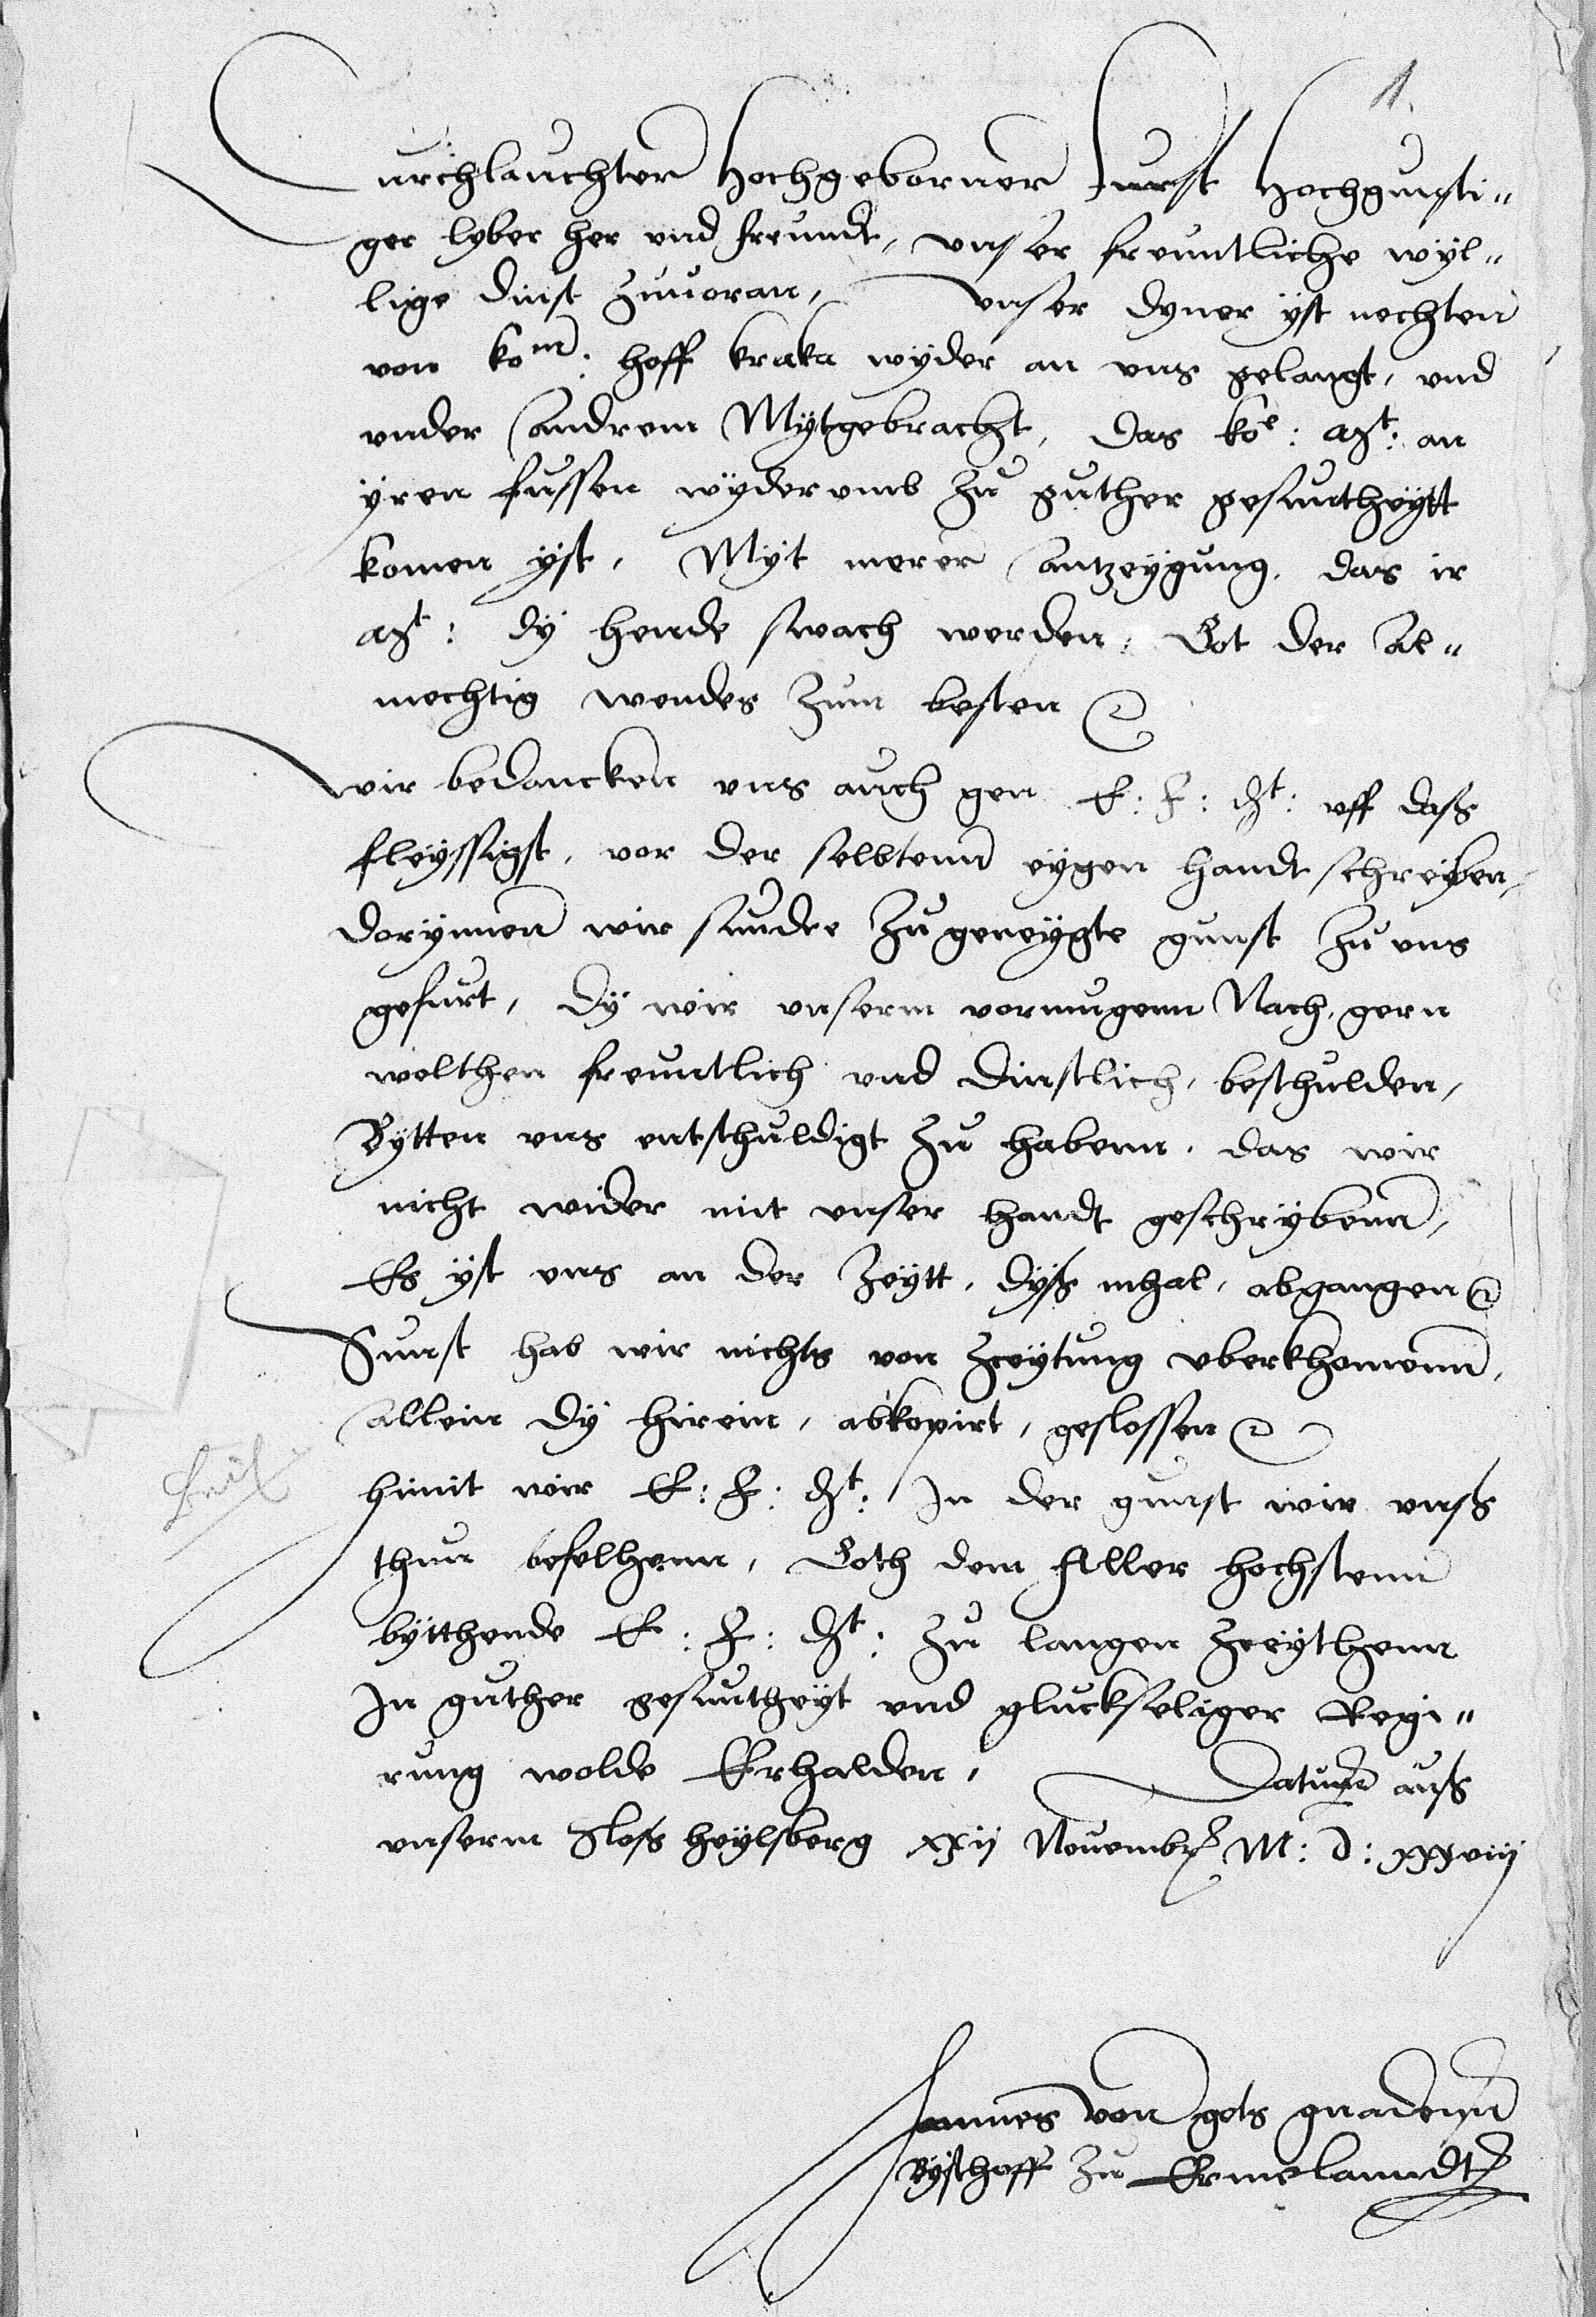 1
Durchlauchter Hochgeborner Furst Hochgunsti„
ger lyber her vnd freundt, vnser freuntliche wyl„
lige dinst zuuoran, vnser dyner yst nechten
von ko^n: hoff kraka wyder an vns gelangt, vnd
vnder andrem Mytgebracht, das ko^e: M^t: an
yren fussen wyderumb zu guther gesuntheytt
komen yst, Myt merer antzeygung, das ir
M^t: dy hende swach werden, Got der al„
mechtig wendes zum besten
Wir bedancken vns auch gen E: F: D^t: vff dass
fleyssigst, vor der selbtenn eygen handt schreyben,
dorynnen wir sundre zugeneygte gunst zu vns
gespurt, dy wir vnserm vormugenn Nach, gern
welthen freuntlich vnd dinstlich, beschulden,
Bytten vns entschuldigt zu habenn, das wir
nicht wider mit vnser handt geschrybenn,
Es yst vns an der Zeytt, dyss mhal, abgangen
Sunst hab wir nichts von zceytung vberkhomenn,
allein dy hirein, abkopirt, geslossen
himit wir E: F: D^t: In der gunst wir vnss
thun befelhenn, Goth dem Aller hochstenn
bytthende E: F: D^t: zu langen zceythenn
In guther gesuntheyt vnd gluckseliger Regi„
rung wolde Erhalden, Datum auss
vnserm Sloss Heylsberg xxij Nouembr M: D: xxxviij
Joannes von gots gnadenn
Bysschoff zu Ermelanndt